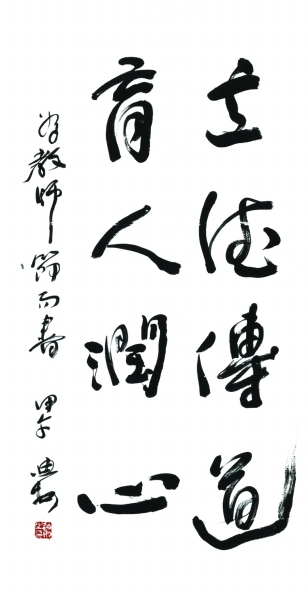 立德傳道
育人潤心
為教師節而書 甲午